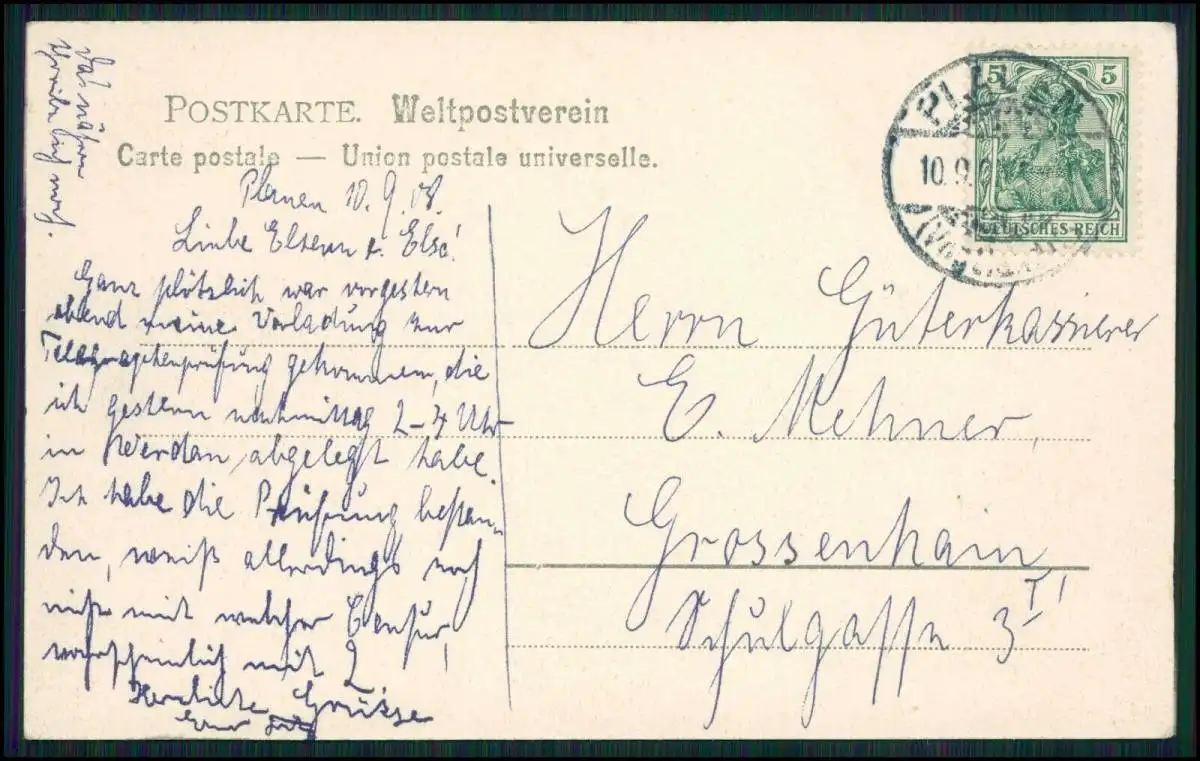 POSTKARTE. Weltpostverein
Carte postale — Union postale universelle.
Plauen 10.9.08.
Liebe Eltern u. Else!
Ganz plötzlich war vorgestern
abend meine Vorladung zur
Telegraphenprüfung gekommen, die
ich gestern nachmittag 2-4 Uhr
in Werdau abgelegt habe.
Ich habe die Prüfung bestan-
den, weiß allerdings noch
nicht mit welcher Censur,
wahrscheinlich mit 2
Herzliche Grüsse
Euer
Das nähere
schreibe ich noch.
5 5
DEUTSCHES REICH
10.9.
Herrn Güterkassierer
E. Mehner,
Grossenhain
Schulgasse 3 I